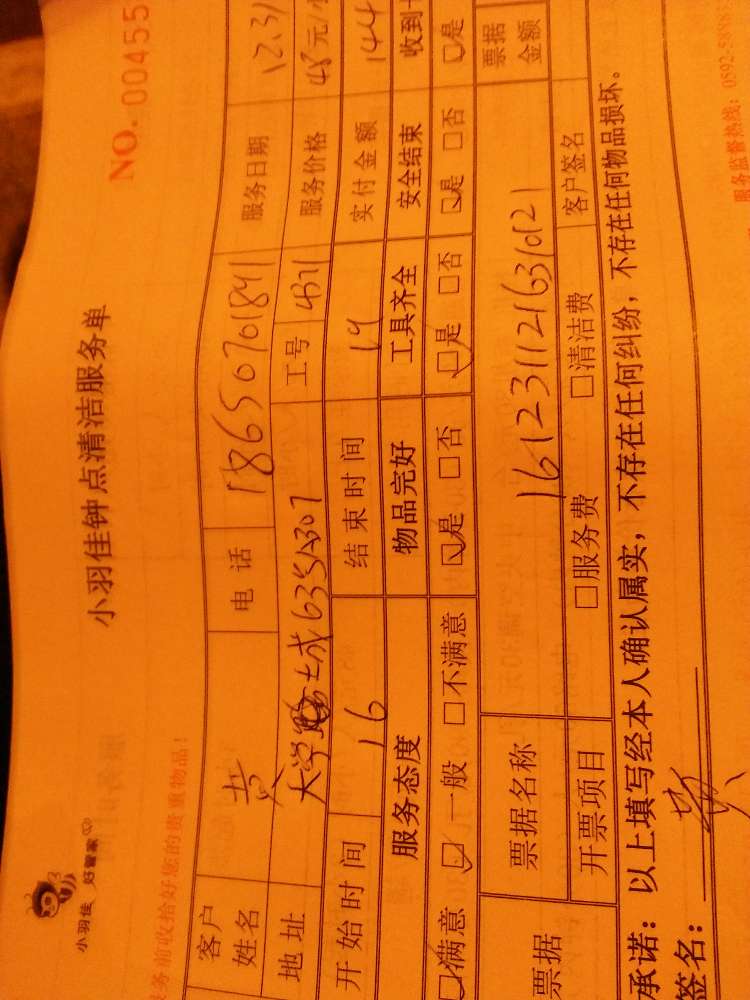 小羽佳 好管家
小羽佳钟点清洁服务单
NO. 00455
服务前收拾好您的贵重物品!
客户姓名 黄 电话 18650701841 服务日期 12.31
地址 大学路 635 307 工号 4371 服务价格 48元/
开始时间 16 结束时间 19 实付金额 144
服务态度 物品完好 工具齐全 安全结束 收到
☑满意 □一般 □不满意 ☑是 □否 ☑是 □否 ☑是 □否 ☑是
票据 票据名称 161231121631012 票据金额
开票项目 □服务费 □清洁费 客户签名
承诺:以上填写经本人确认属实,不存在任何纠纷,不存在任何物品损坏。
签名:
服务监督热线:0592-